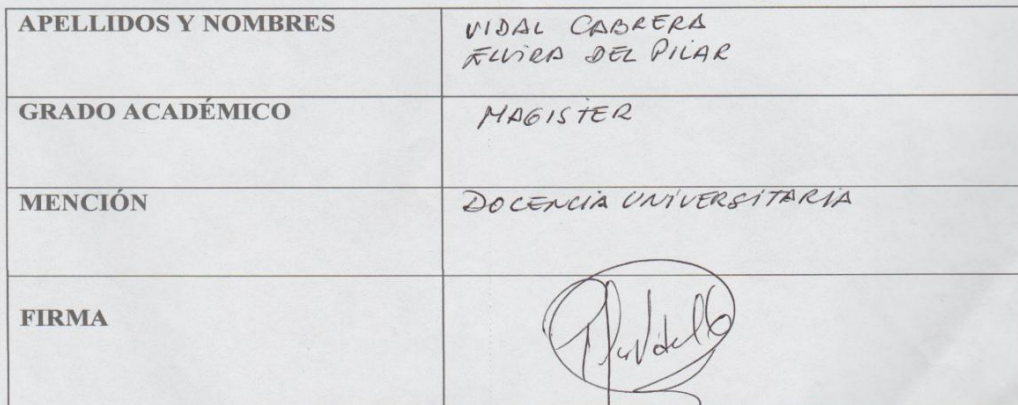 APELLIDOS Y NOMBRES
VIDAL CABRERA
ELVIRA DEL PILAR
GRADO ACADÉMICO
MAGISTER
MENCIÓN
DOCENCIA UNIVERSITARIA
FIRMA